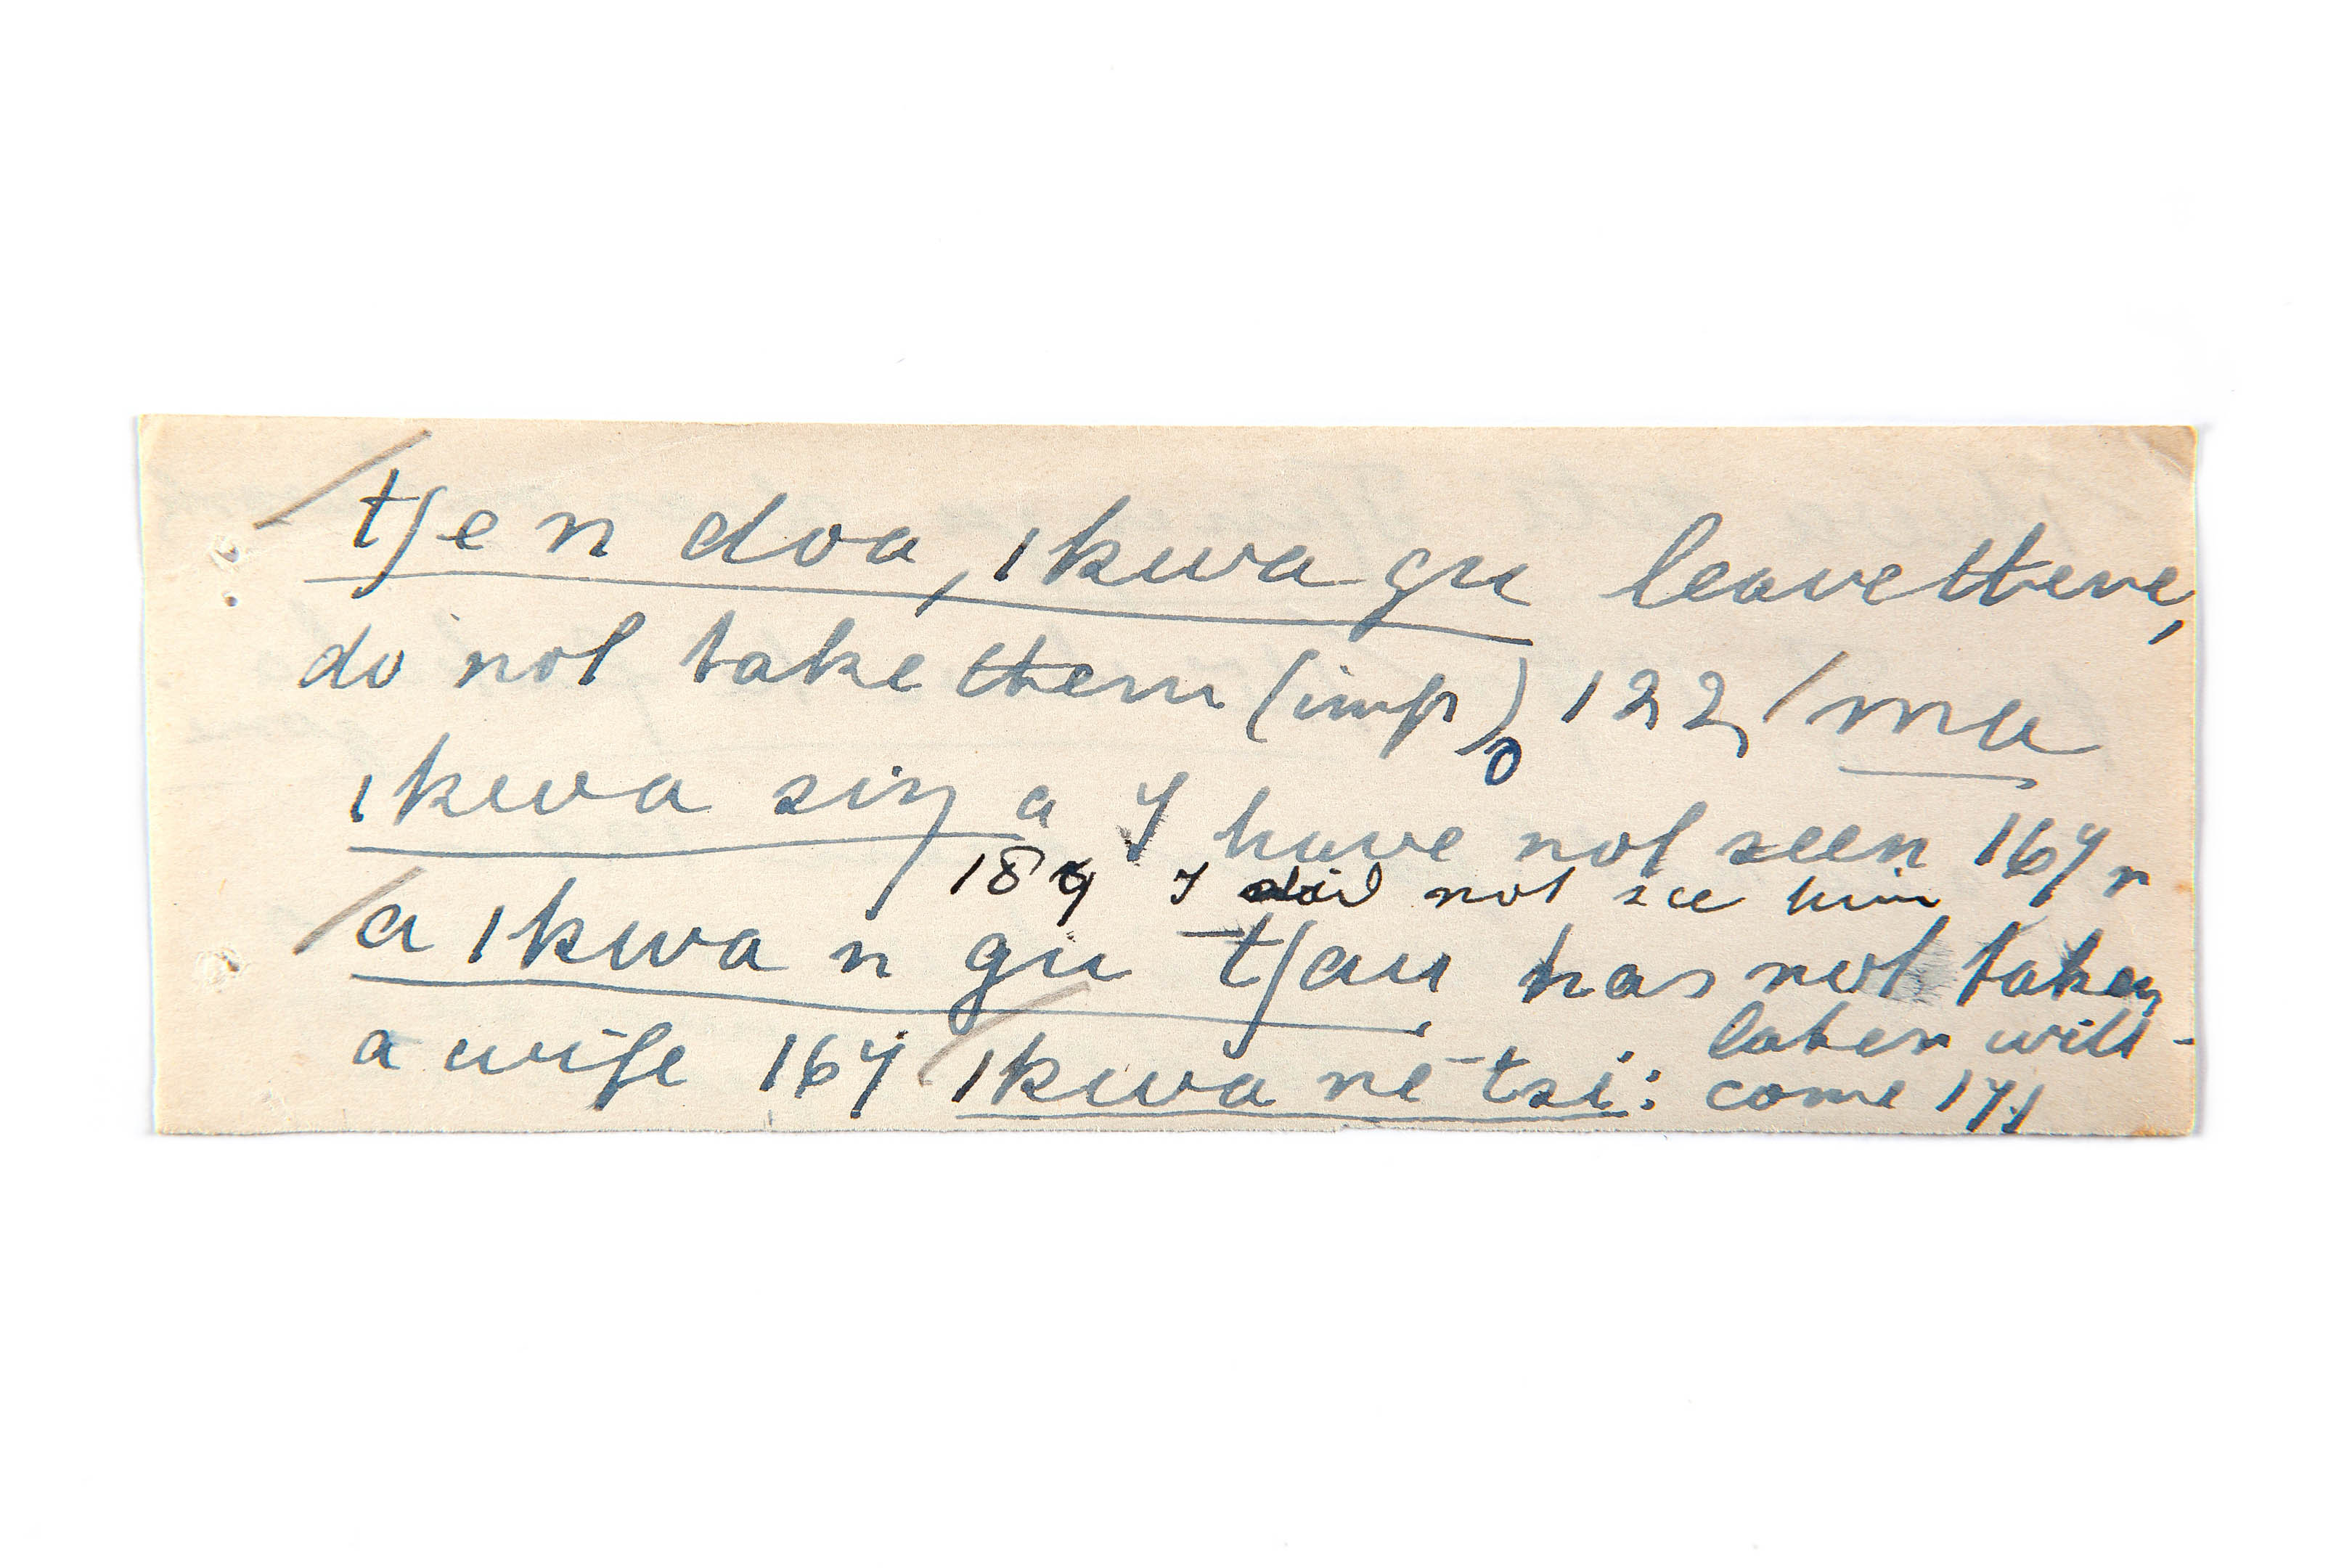 /tʃe n doa, ıkwa gu leave there,
do not take them (imp) 122, /ma
ıkwa siŋ a I have not seen 167,
187 I did not see him
/a ıkwa n gu tʃau has not taken
a wife 167 /ıkwa ne tsi: later will
come 171